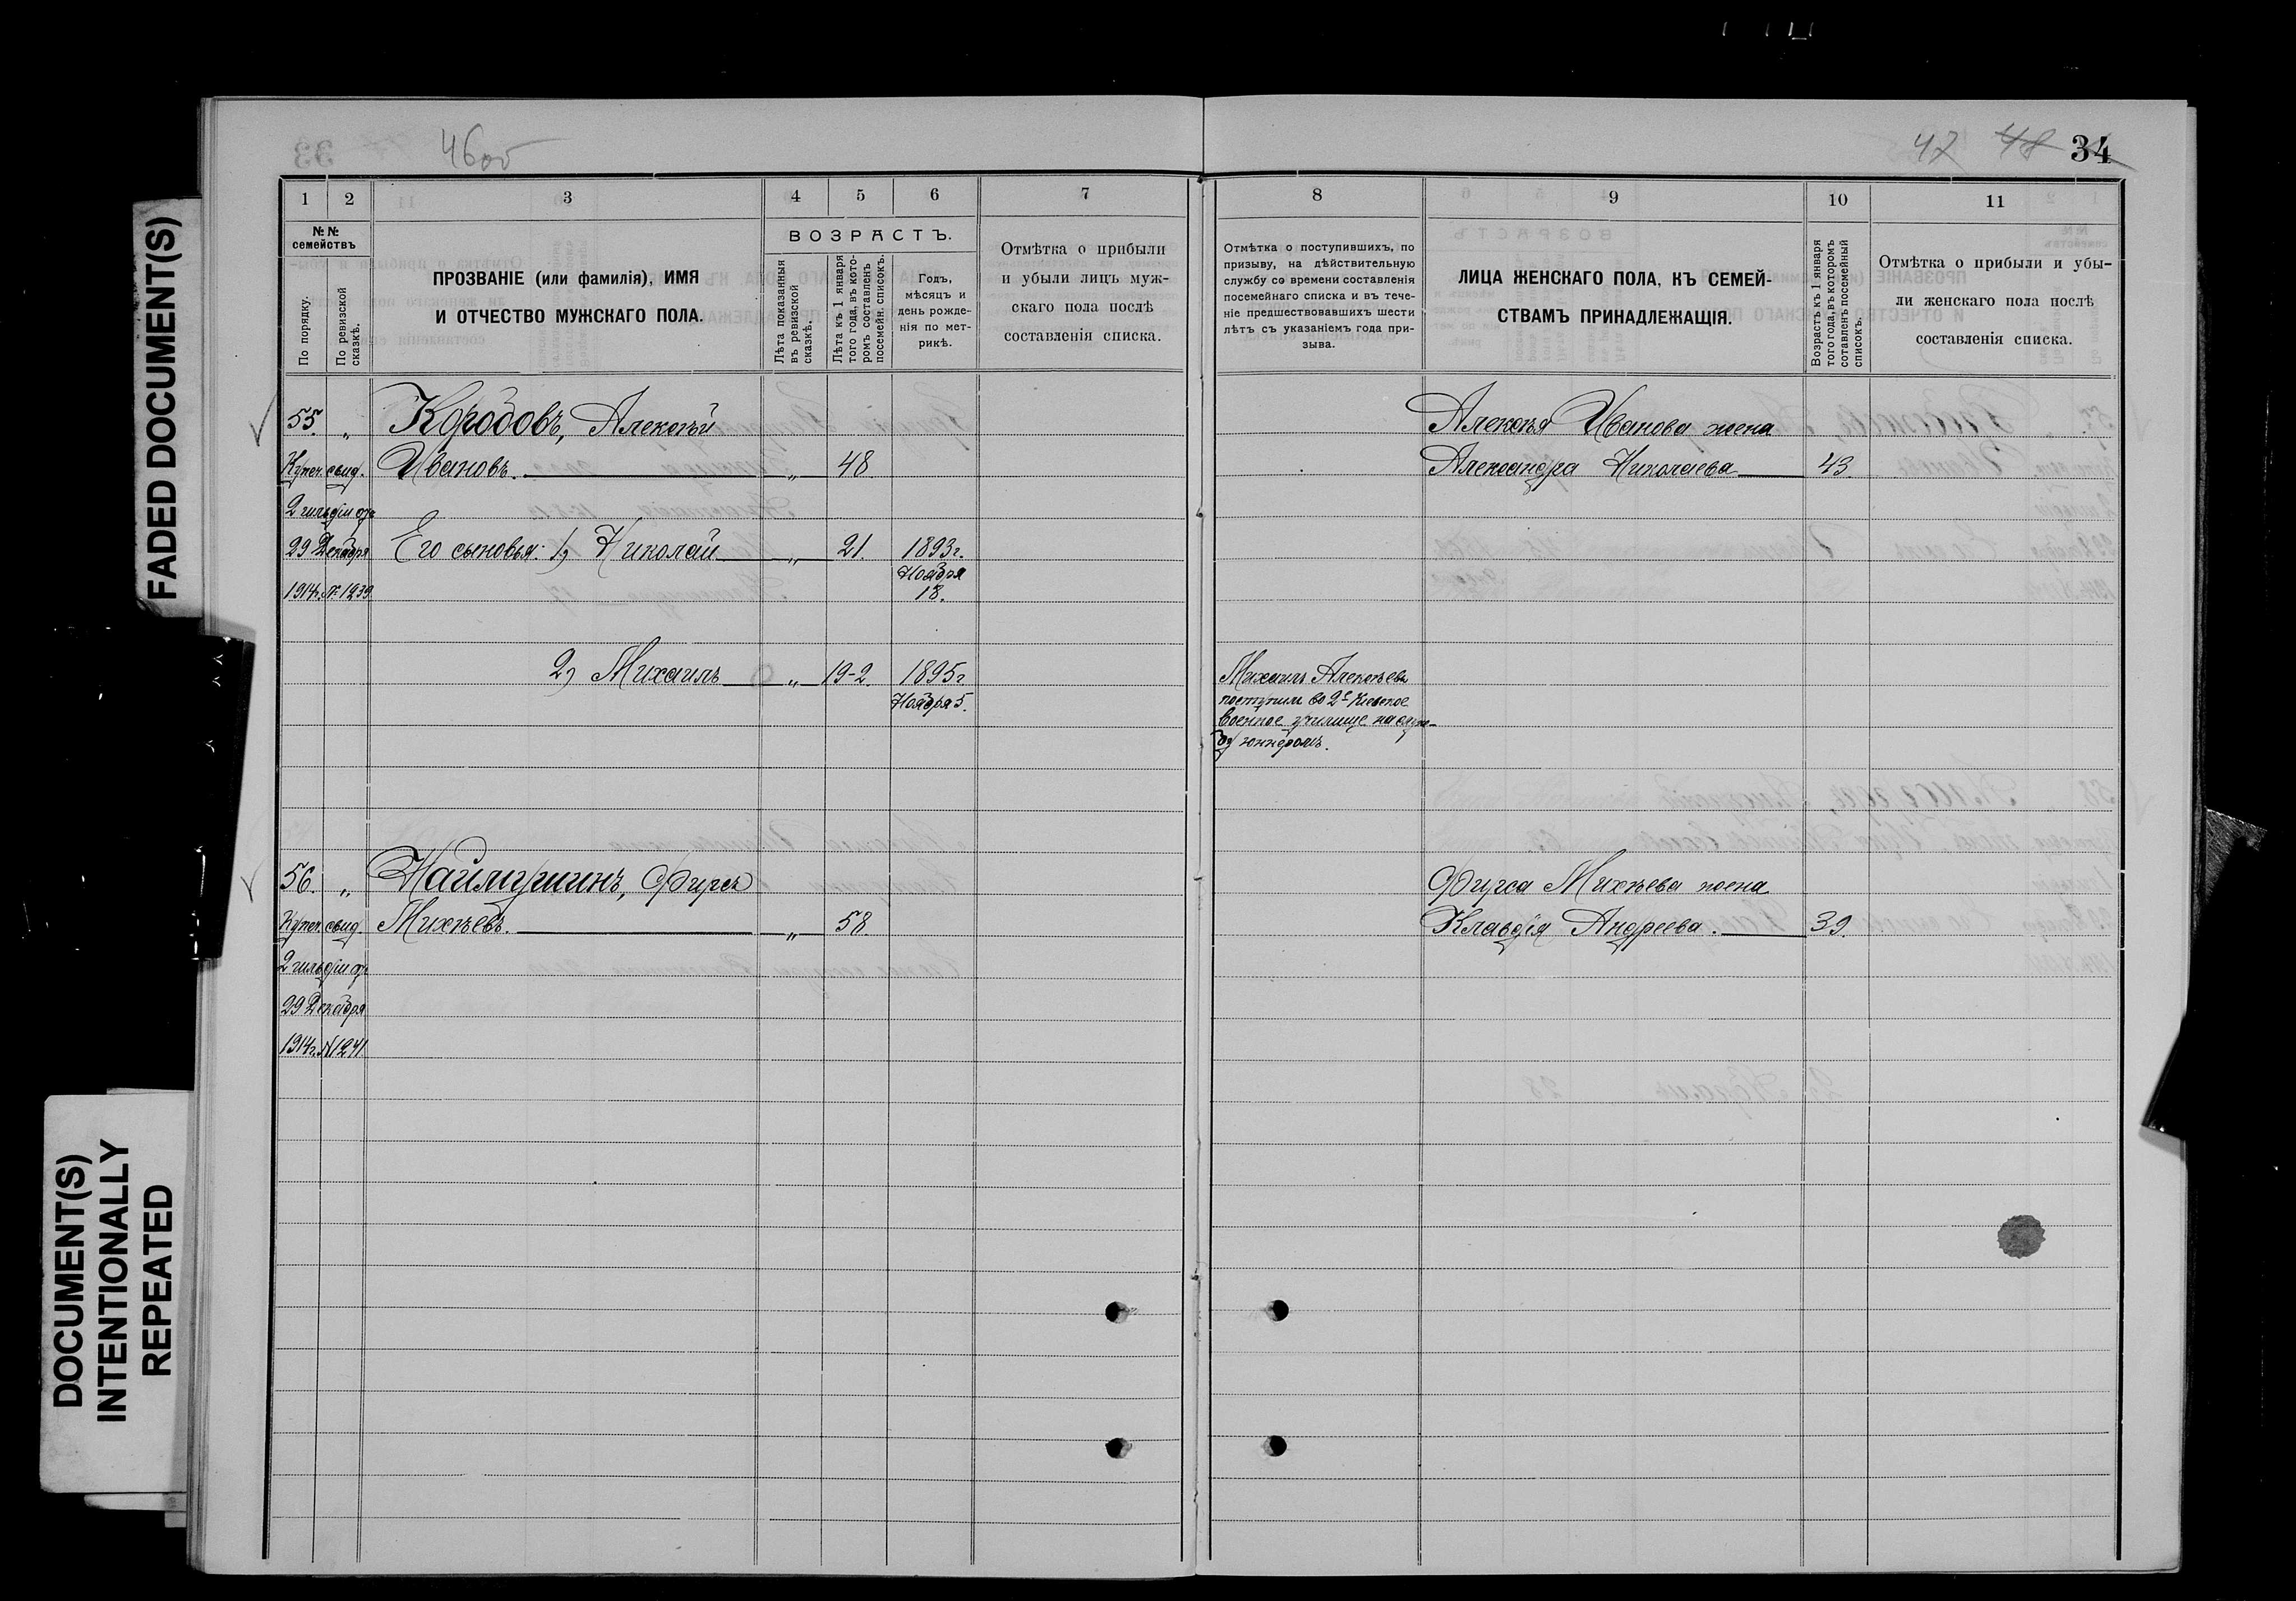 FADED DOCUMENT(S)
DOCUMENT(S)
INTENTIONALLY
REPEATED
46об
1 2 3 4 5 6 7
№№ семействъ
По порядку.
По ревизской сказкѣ.
ПРОЗВАНІЕ (или фамилія), ИМЯ
И ОТЧЕСТВО МУЖСКАГО ПОЛА.
ВОЗРАСТЪ.
Лѣта показанныя
въ ревизской
сказкѣ.
Лѣта къ 1 января
того года, въ кото-
ромъ составленъ
посемейн. списокъ.
Годъ,
мѣсяцъ и
день рожде-
нія по мет-
рикѣ.
Отмѣтка о прибыли
и убыли лицъ муж-
скаго пола послѣ
составленія списка.
55. „ Коробовъ, Алексѣй
Купеч. свид. Ивановъ. „ 48.
2 гильдіи отъ
29 Декабря Его сыновья: 1) Николай „ 21 1893г.
Ноября
1914г. № 1239. 18.
2) Михаилъ „ 19-2. 1895г
Ноября 5.
56. „ Наймушинъ, Фирсъ
Купеч. свид. Михѣевъ. „ 58.
2 гильдіи от
29 Декабря
1914г. № 1241
47 48 34
8 9 10 11
Отмѣтка о поступившихъ, по
призыву, на дѣйствительную
службу со времени составленія
посемейнаго списка и въ тече-
ніе предшествовавшихъ шести
лѣтъ съ указаніемъ года при-
зыва.
ЛИЦА ЖЕНСКАГО ПОЛА, КЪ СЕМЕЙ-
СТВАМЪ ПРИНАДЛЕЖАЩІЯ.
Возрастъ къ 1 января
того года, въ которомъ
сотавленъ посемейный
списокъ.
Отмѣтка о прибыли и убы-
ли женскаго пола послѣ
составленія списка.
Алексѣя Иванова жена
Александра Николаева 43.
Михаилъ Алексѣевъ
поступилъ во 2е Кіевское
военное училище на служ-
бу юнкеромъ.
Фирса Михѣева жена
Клавдія Андреева. 39.